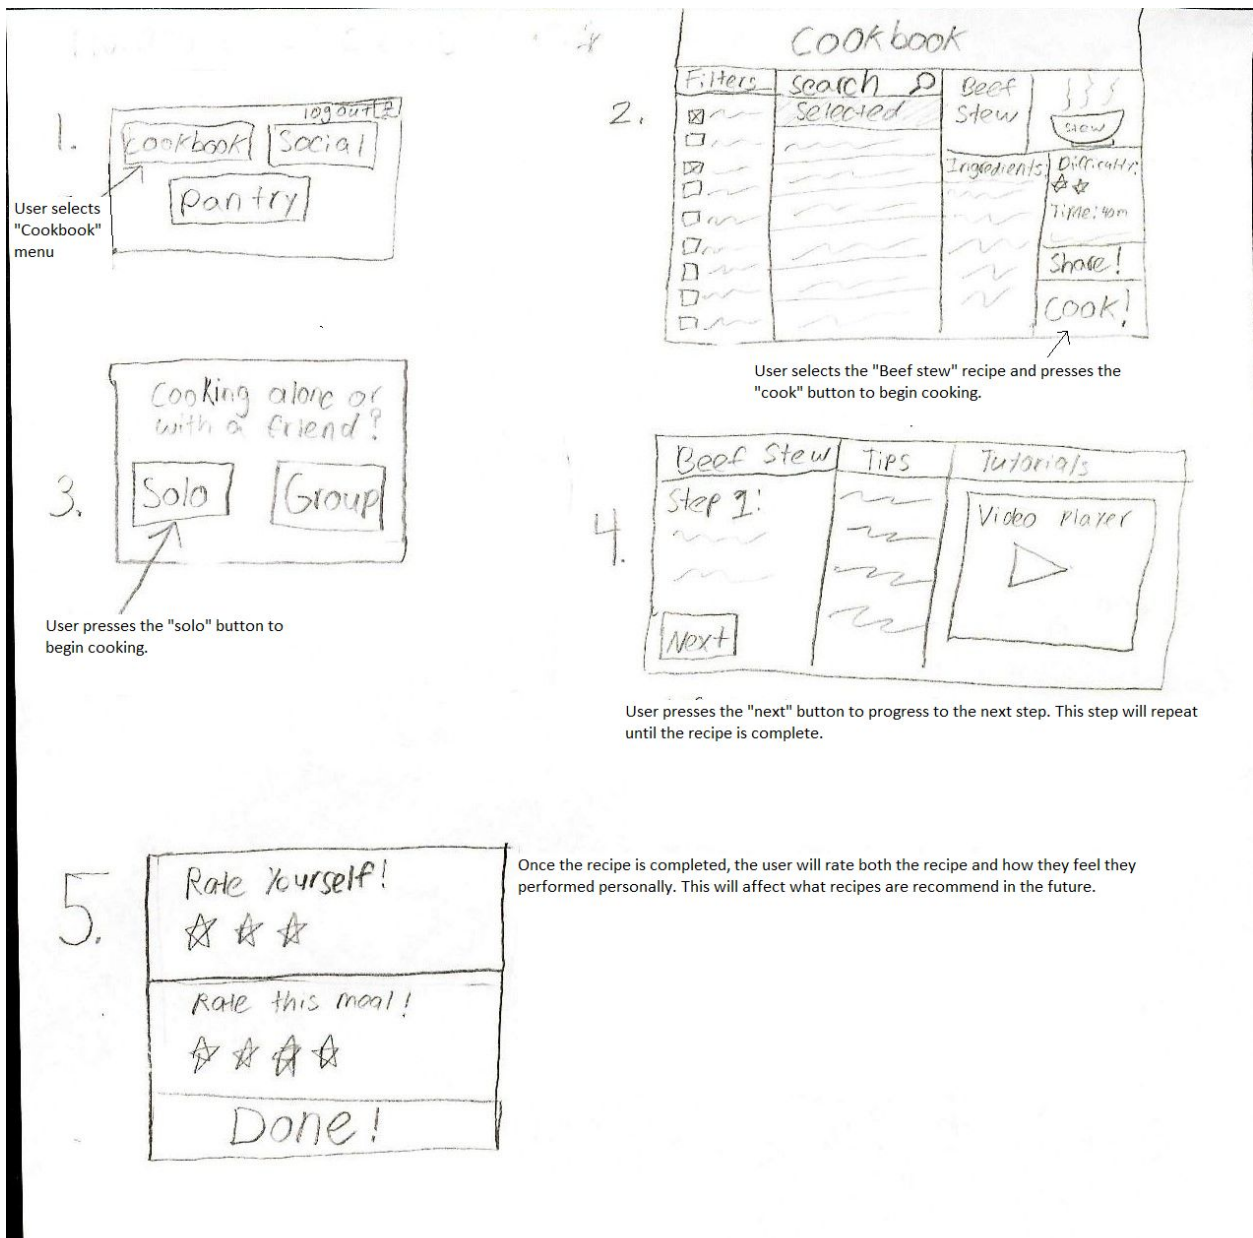 1.
logout
Cookbook
Social
Pantry
User selects
"Cookbook"
menu
2.
Cookbook
Filters
Search
Selected
Beef
Stew
stew
Ingredients:
Difficulty:
Time: 40m
Share!
Cook!
User selects the "Beef stew" recipe and presses the
"cook" button to begin cooking.
3.
Cooking alone or
with a friend?
Solo
Group
User presses the "solo" button to
begin cooking.
4.
Beef Stew
Tips
Tutorials
Step 1:
Video Player
Next
User presses the "next" button to progress to the next step. This step will repeat
until the recipe is complete.
5.
Rate Yourself!
Rate this meal!
Done!
Once the recipe is completed, the user will rate both the recipe and how they feel they
performed personally. This will affect what recipes are recommend in the future.